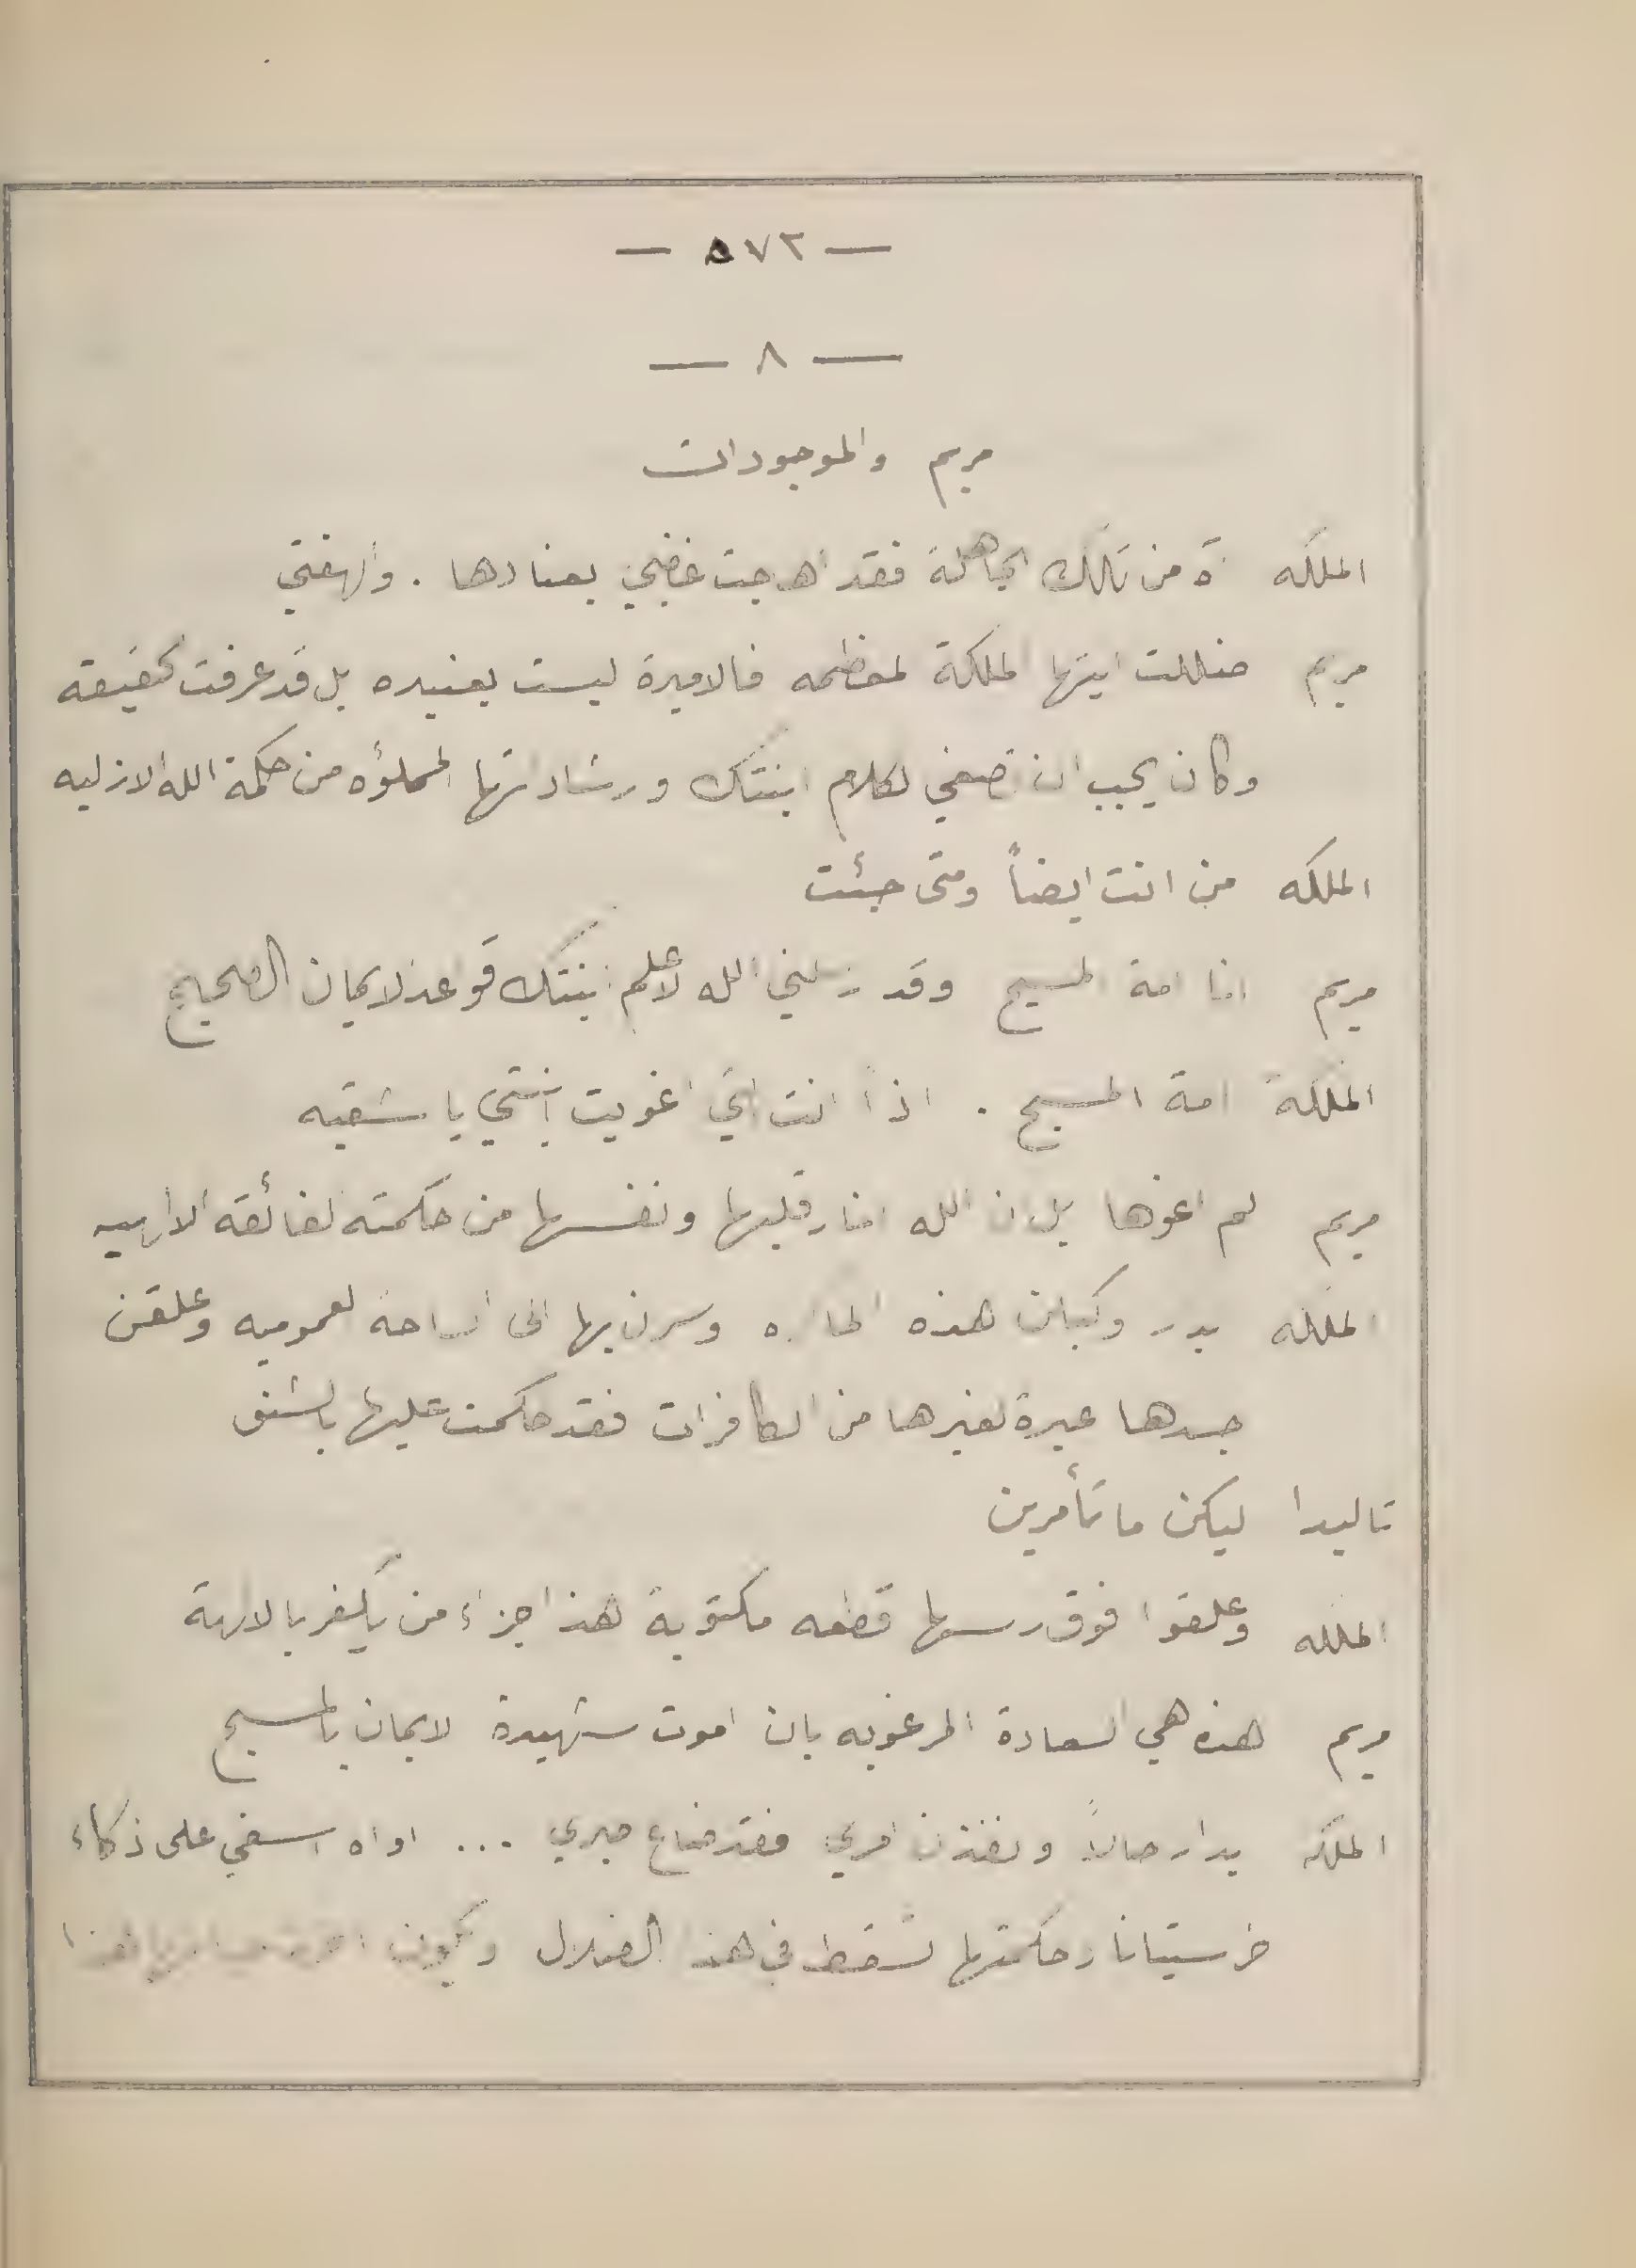 — ٥٧٢ —
— ٨ —
مريم والموجودات
الملكه آه من تلك الجاهلة فقد اهاجت غضبي بعنادها . والهفتي
مريم ضللت ايتها الملكة المعظمه فالاميرة ليست بعنيده بل قد عرفت الحقيقه
وكان يجب ان تصغي لكلام ابنتك وارشاداتها المملؤه من حكمة الله الازليه
الملكه من انت ايضاً ومتى جئت
مريم انا امة المسيح وقد ارسلني الله لاعلم ابنتك قواعد الايمان الصحيح
الملكة امة المسيح . اذاً انت التي اغويت ابنتي يا شقيه
مريم لم اغوها بل ان الله انار قلبها ونفسها من حكمته الفائقة الالهيه
الملكه بدر وكبلن هذه وسرن بها الى الساحة العموميه وعلقن
جسدها عبرة لغيرها من الكافرات فقد حكمت عليها بالشنق
تاليدا ليكن ما تأمرين
الملكه وعلقوا فوق رسها قطعه مكتوبة هذا جزاء من يكفر بالالهة
مريم هذه هي السعادة المرغوبه بان اموت شهيدة الايمان بالمسيح
الملكه بدار حالاً ونفذن امري فقد ضاع صبري ... اواه اسفي على ذكاء
خرستيانا وحكمتها لتسقط في هذا الضلال ويكون